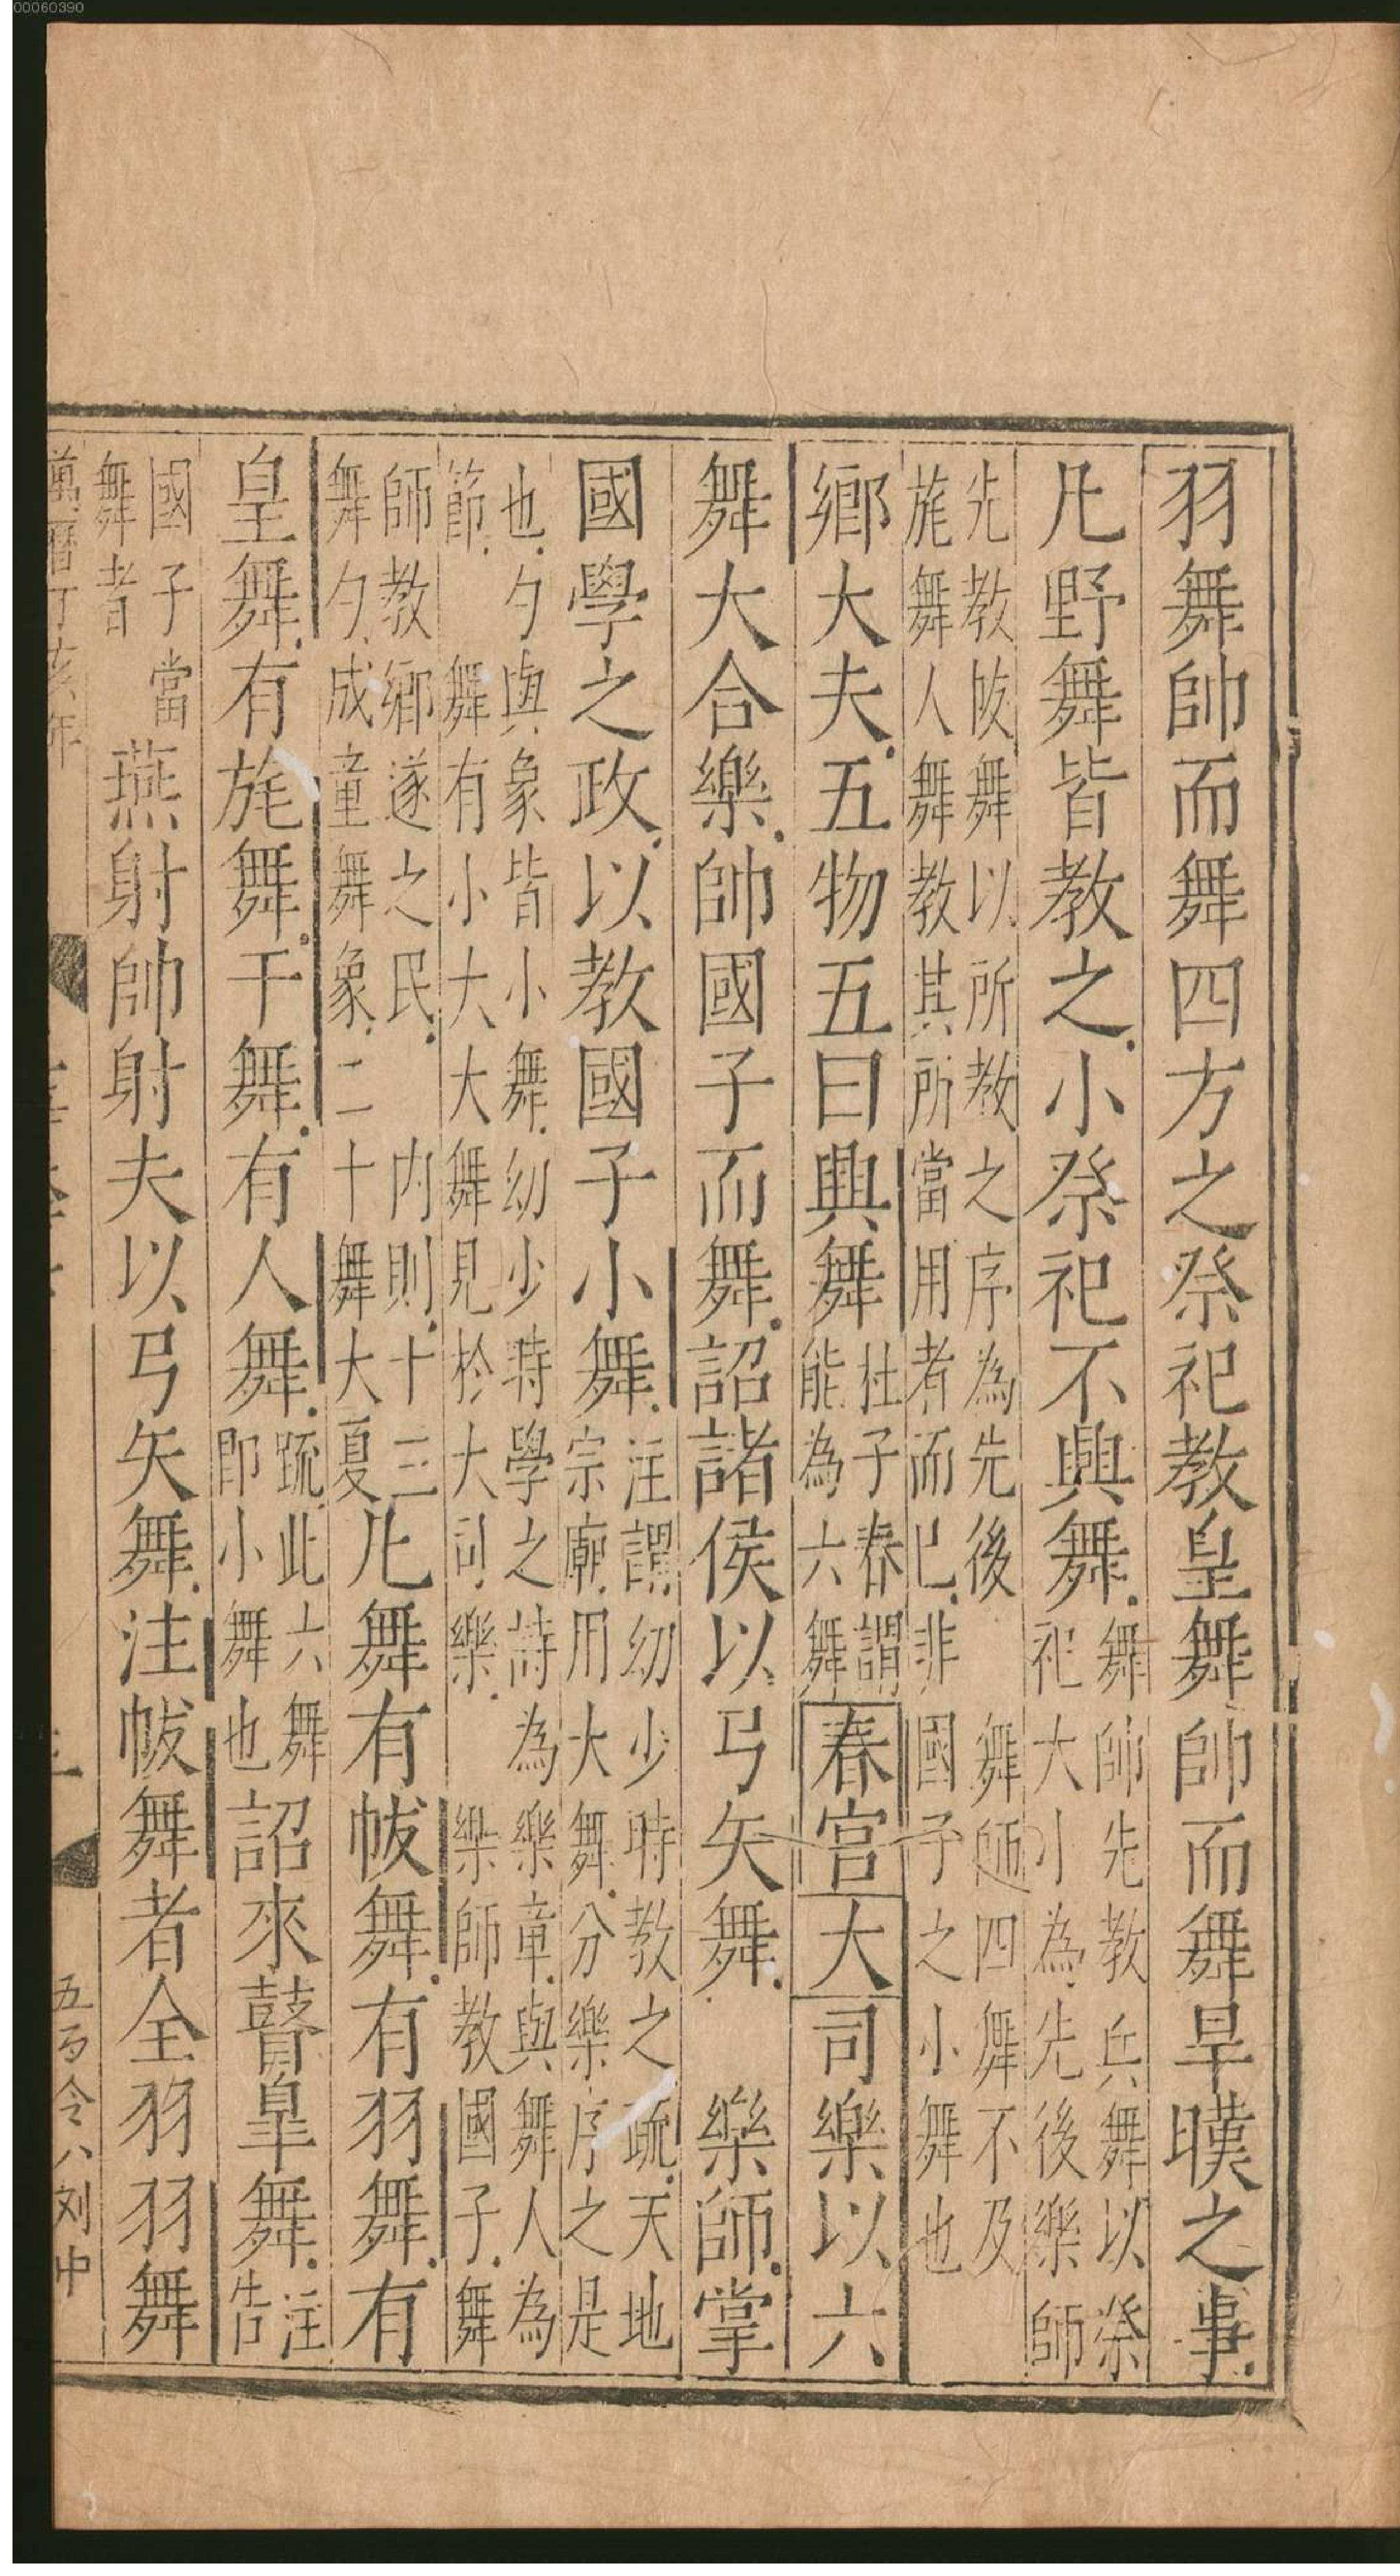 00060390
羽舞帥而舞四方之祭祀教皇舞帥而舞旱暵之事
凡野舞皆教之小祭祀不興舞舞師先教兵舞以祭祀大小為先後樂師
先教帗舞以所教之序為先後舞師四舞不及旄舞人舞教其所當用者而已非國子之小舞也
鄉大夫五物五曰興舞杜子春謂能為六舞春官大司樂以六
舞大合樂帥國子而舞詔諸侯以弓矢舞樂師掌
國學之政以教國子小舞注謂幼少時教之疏天地宗廟用大舞分樂序之是
也勺與象皆小舞幼少時學之詩為樂章與舞人為節舞有小大大舞見於大司樂樂師教國子舞
師教鄉遂之民內則十三舞勺成童舞象二十舞大夏凡舞有帗舞有羽舞有
皇舞有旄舞干舞有人舞疏此六舞即小舞也詔來瞽皐舞注告
國子當舞者燕射帥射夫以弓矢舞注帗舞者全羽羽舞
萬曆丁亥年
五百令八刘中